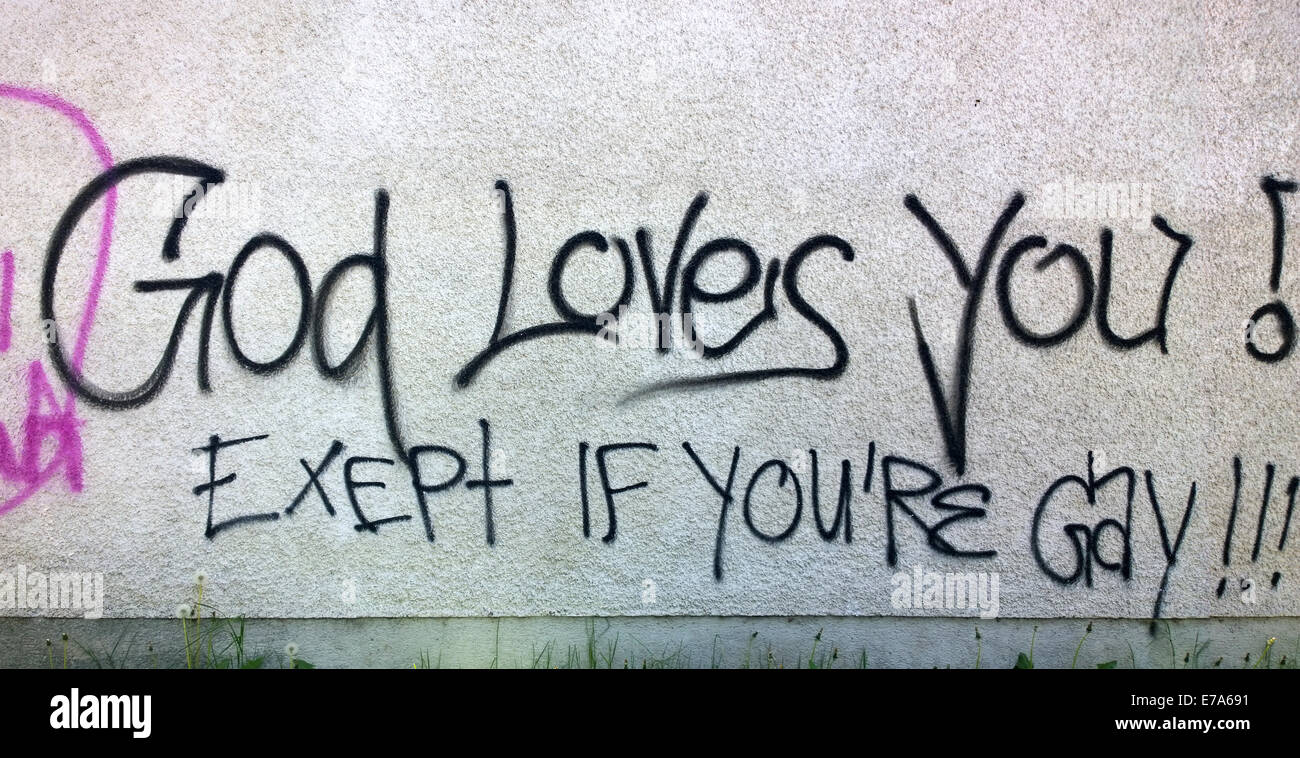 God Loves you!
EXEPt IF YOU'RE Gay!!!
a alamy
alamy
Image ID: E7A691
www.alamy.com